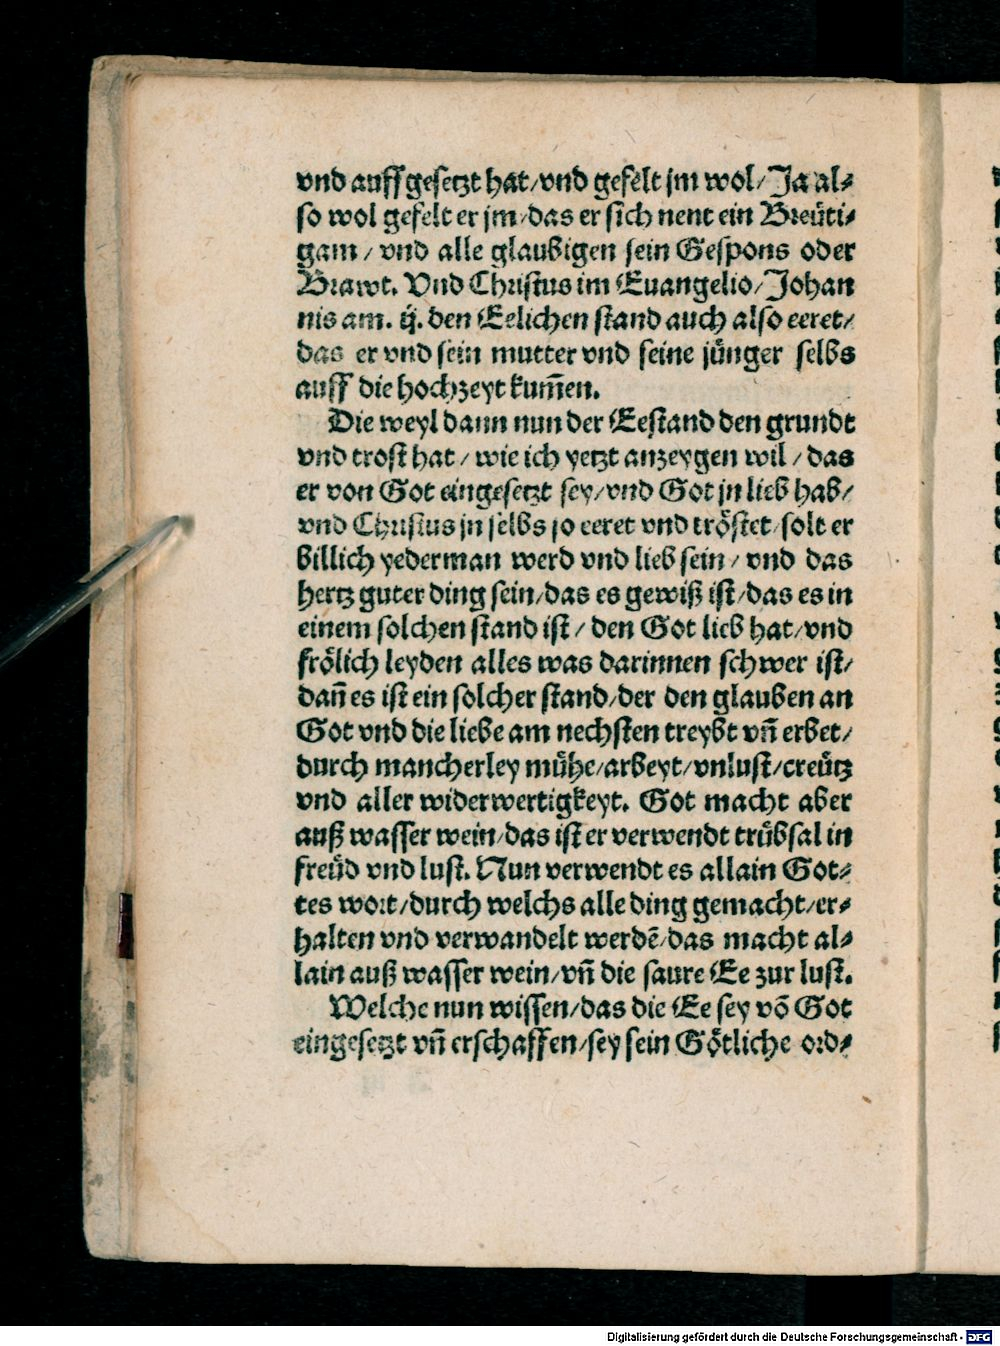 vnd auffgesetzt hat/vnd gefelt jm wol/Ja al⸗
so wol gefelt er jm/das er sich nent ein Breüti⸗
gam/vnd alle glaubigen sein Gespons oder
Brawt. Vnd Christus im Euangelio/Johan
nis am. ij. den Eelichen stand auch also eeret/
das er vnd sein mutter vnd seine jünger selbs
auff die hochzeyt kum̃en.
Die weyl dann nun der Eestand den grundt
vnd trost hat/wie ich yetzt anzeygen wil/das
er von Got eingesetzt sey/vnd Got jn lieb hab/
vnd Christus jn selbs so eeret vnd tröstet/solt er
billich yederman werd vnd lieb sein/vnd das
hertz guter ding sein/das es gewiß ist/das es in
einem solchen stand ist/den Got lieb hat/vnd
frölich leyden alles was darinnen schwer ist/
dañ es ist ein solcher stand/der den glauben an
Got vnd die liebe am nechsten treybt vñ erbet/
durch mancherley mühe/arbeyt/vnlust/creütz
vnd aller widerwertigkeyt. Got macht aber
auß wasser wein/das ist er verwendt trübsal in
freüd vnd lust. Nun verwendt es allain Got⸗
tes wort/durch welchs alle ding gemacht/er⸗
halten vnd verwandelt werdẽ/das macht al⸗
lain auß wasser wein/vñ die saure Ee zur lust.
Welche nun wissen/das die Ee sey võ Got
eingesetzt vñ erschaffen/sey sein Götliche ord⸗
Digitalisierung gefördert durch die Deutsche Forschungsgemeinschaft - DFG